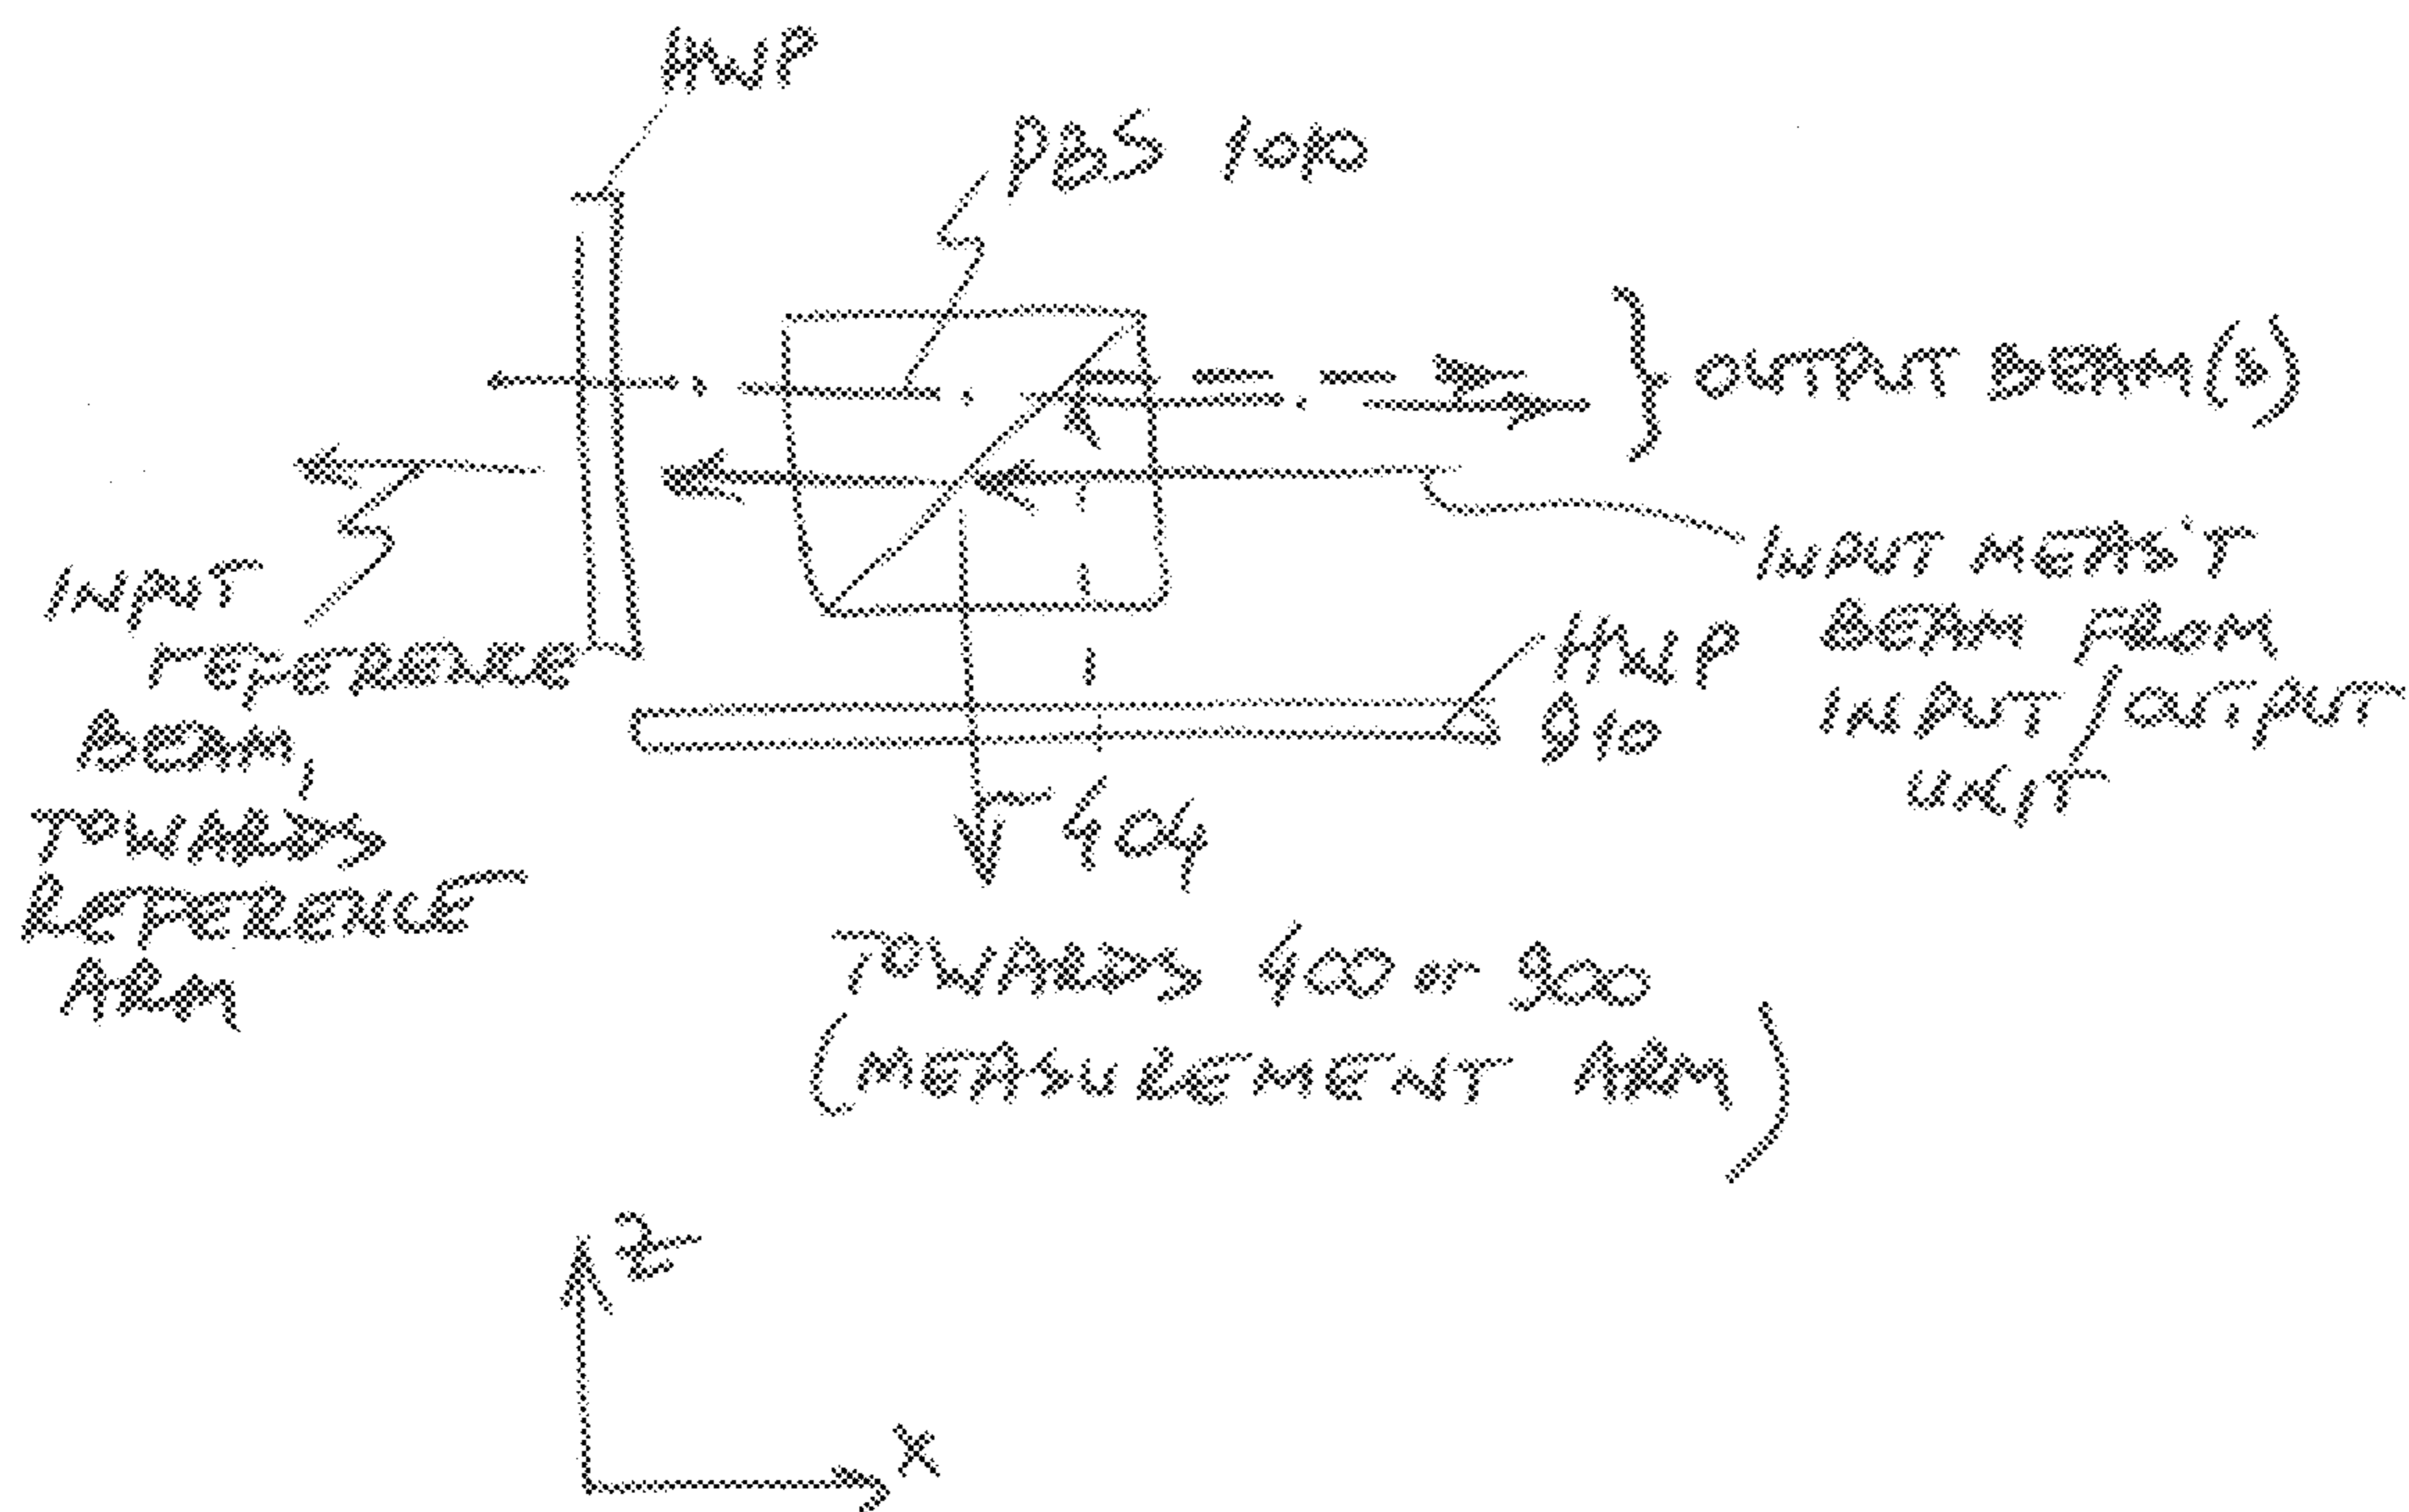 HWP
PBS 1010
OUTPUT BEAM(s)
INPUT MEAS'T
BEAM FROM
INPUT / OUTPUT
UNIT
INPUT
reference
BEAM,
TOWARDS
REFERENCE
ARM
HWP
910
404
TOWARDS 400 or 900
(MEASUREMENT ARM)
Z
X